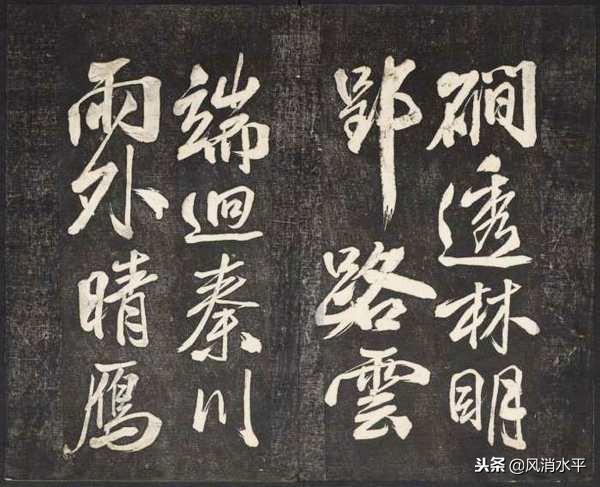 磵透林明
郢路雲
端逈秦川
雨外晴鴈
头条 @风消水平